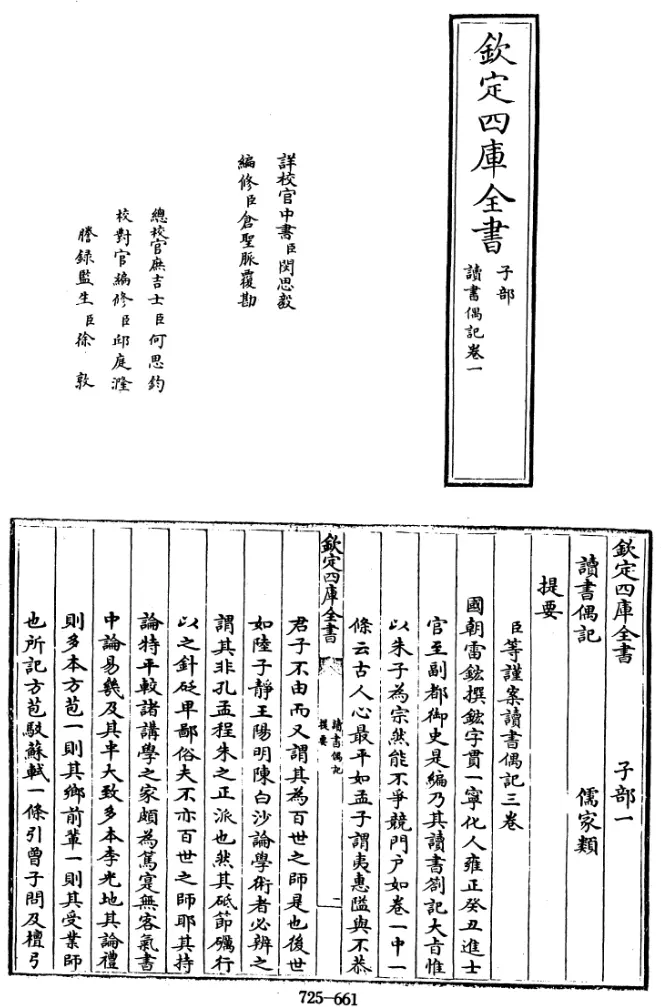 欽定四庫全書
子部
讀書偶記卷一
詳校官中書臣閔思毅
編修臣倉聖脈覆勘
總校官庶吉士臣何思鈞
校對官編修臣邱庭漋
謄録監生臣徐敦
欽定四庫全書 子部一
讀書偶記 儒家類
提要
臣等謹案讀書偶記三卷
國朝雷鋐撰鋐字貫一寧化人雍正癸丑進士
官至副都御史是編乃其讀書劄記大旨惟
以朱子為宗然能不爭競門户如卷一中一
條云古人心最平如孟子謂夷惠隘與不恭
欽定四庫全書
讀書偶記
提要
一
君子不由而又謂其為百世之師是也後世
如陸子靜王陽明陳白沙論學術者必辨之
謂其非孔孟程朱之正派也然其砥節礪行
以之針砭卑鄙俗夫不亦百世之師耶其持
論特平較諸講學之家頗為篤寔無客氣書
中論易幾及其半大致多本李光地其論禮
則多本方苞一則其鄉前輩一則其受業師
也所記方苞駁蘇軾一條引曾子問及檀弓
725-661